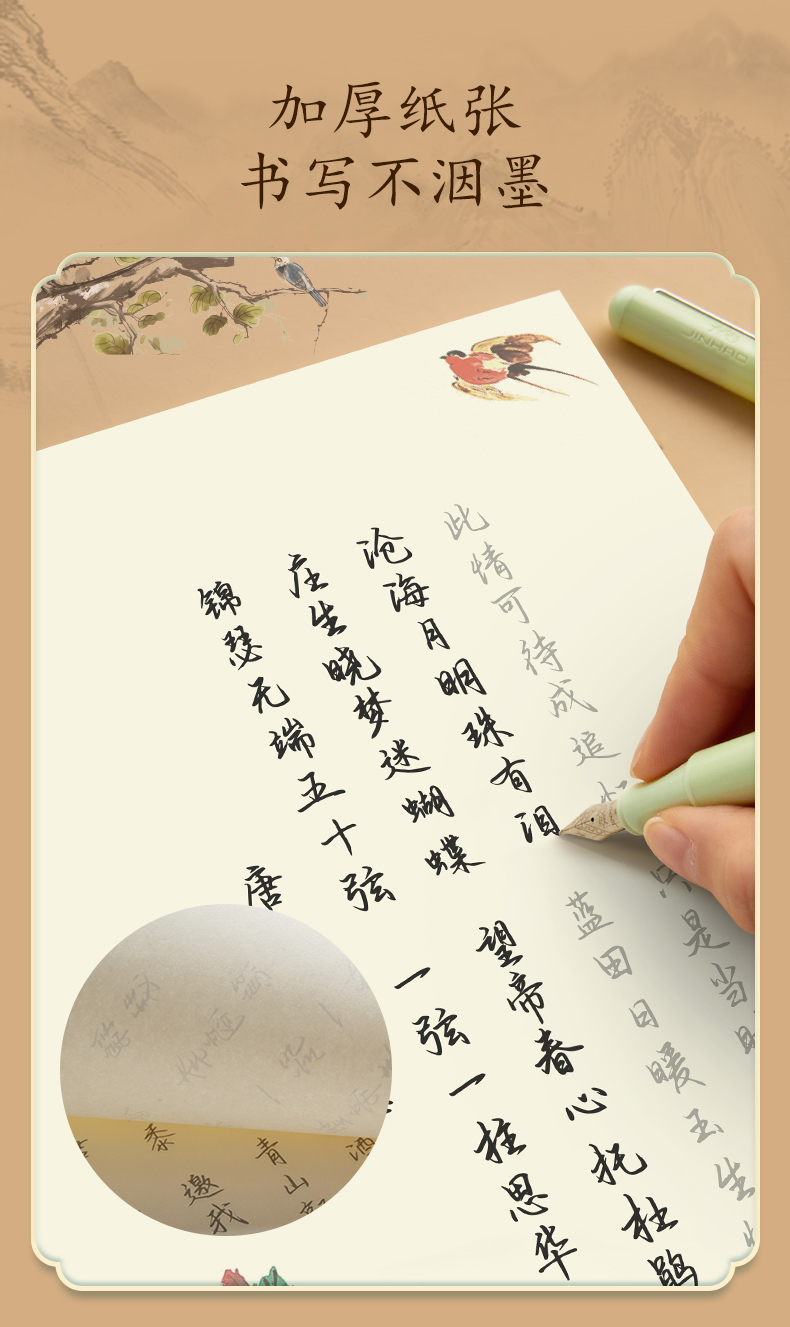 加厚纸张
书写不洇墨
JINHAO
唐
锦瑟无端五十弦 一弦一柱思华
庄生晓梦迷蝴蝶 望帝春心托杜鹃
沧海月明珠有泪 蓝田日暖玉生
此情可待成追 是当
黍
邀我
青山
酒